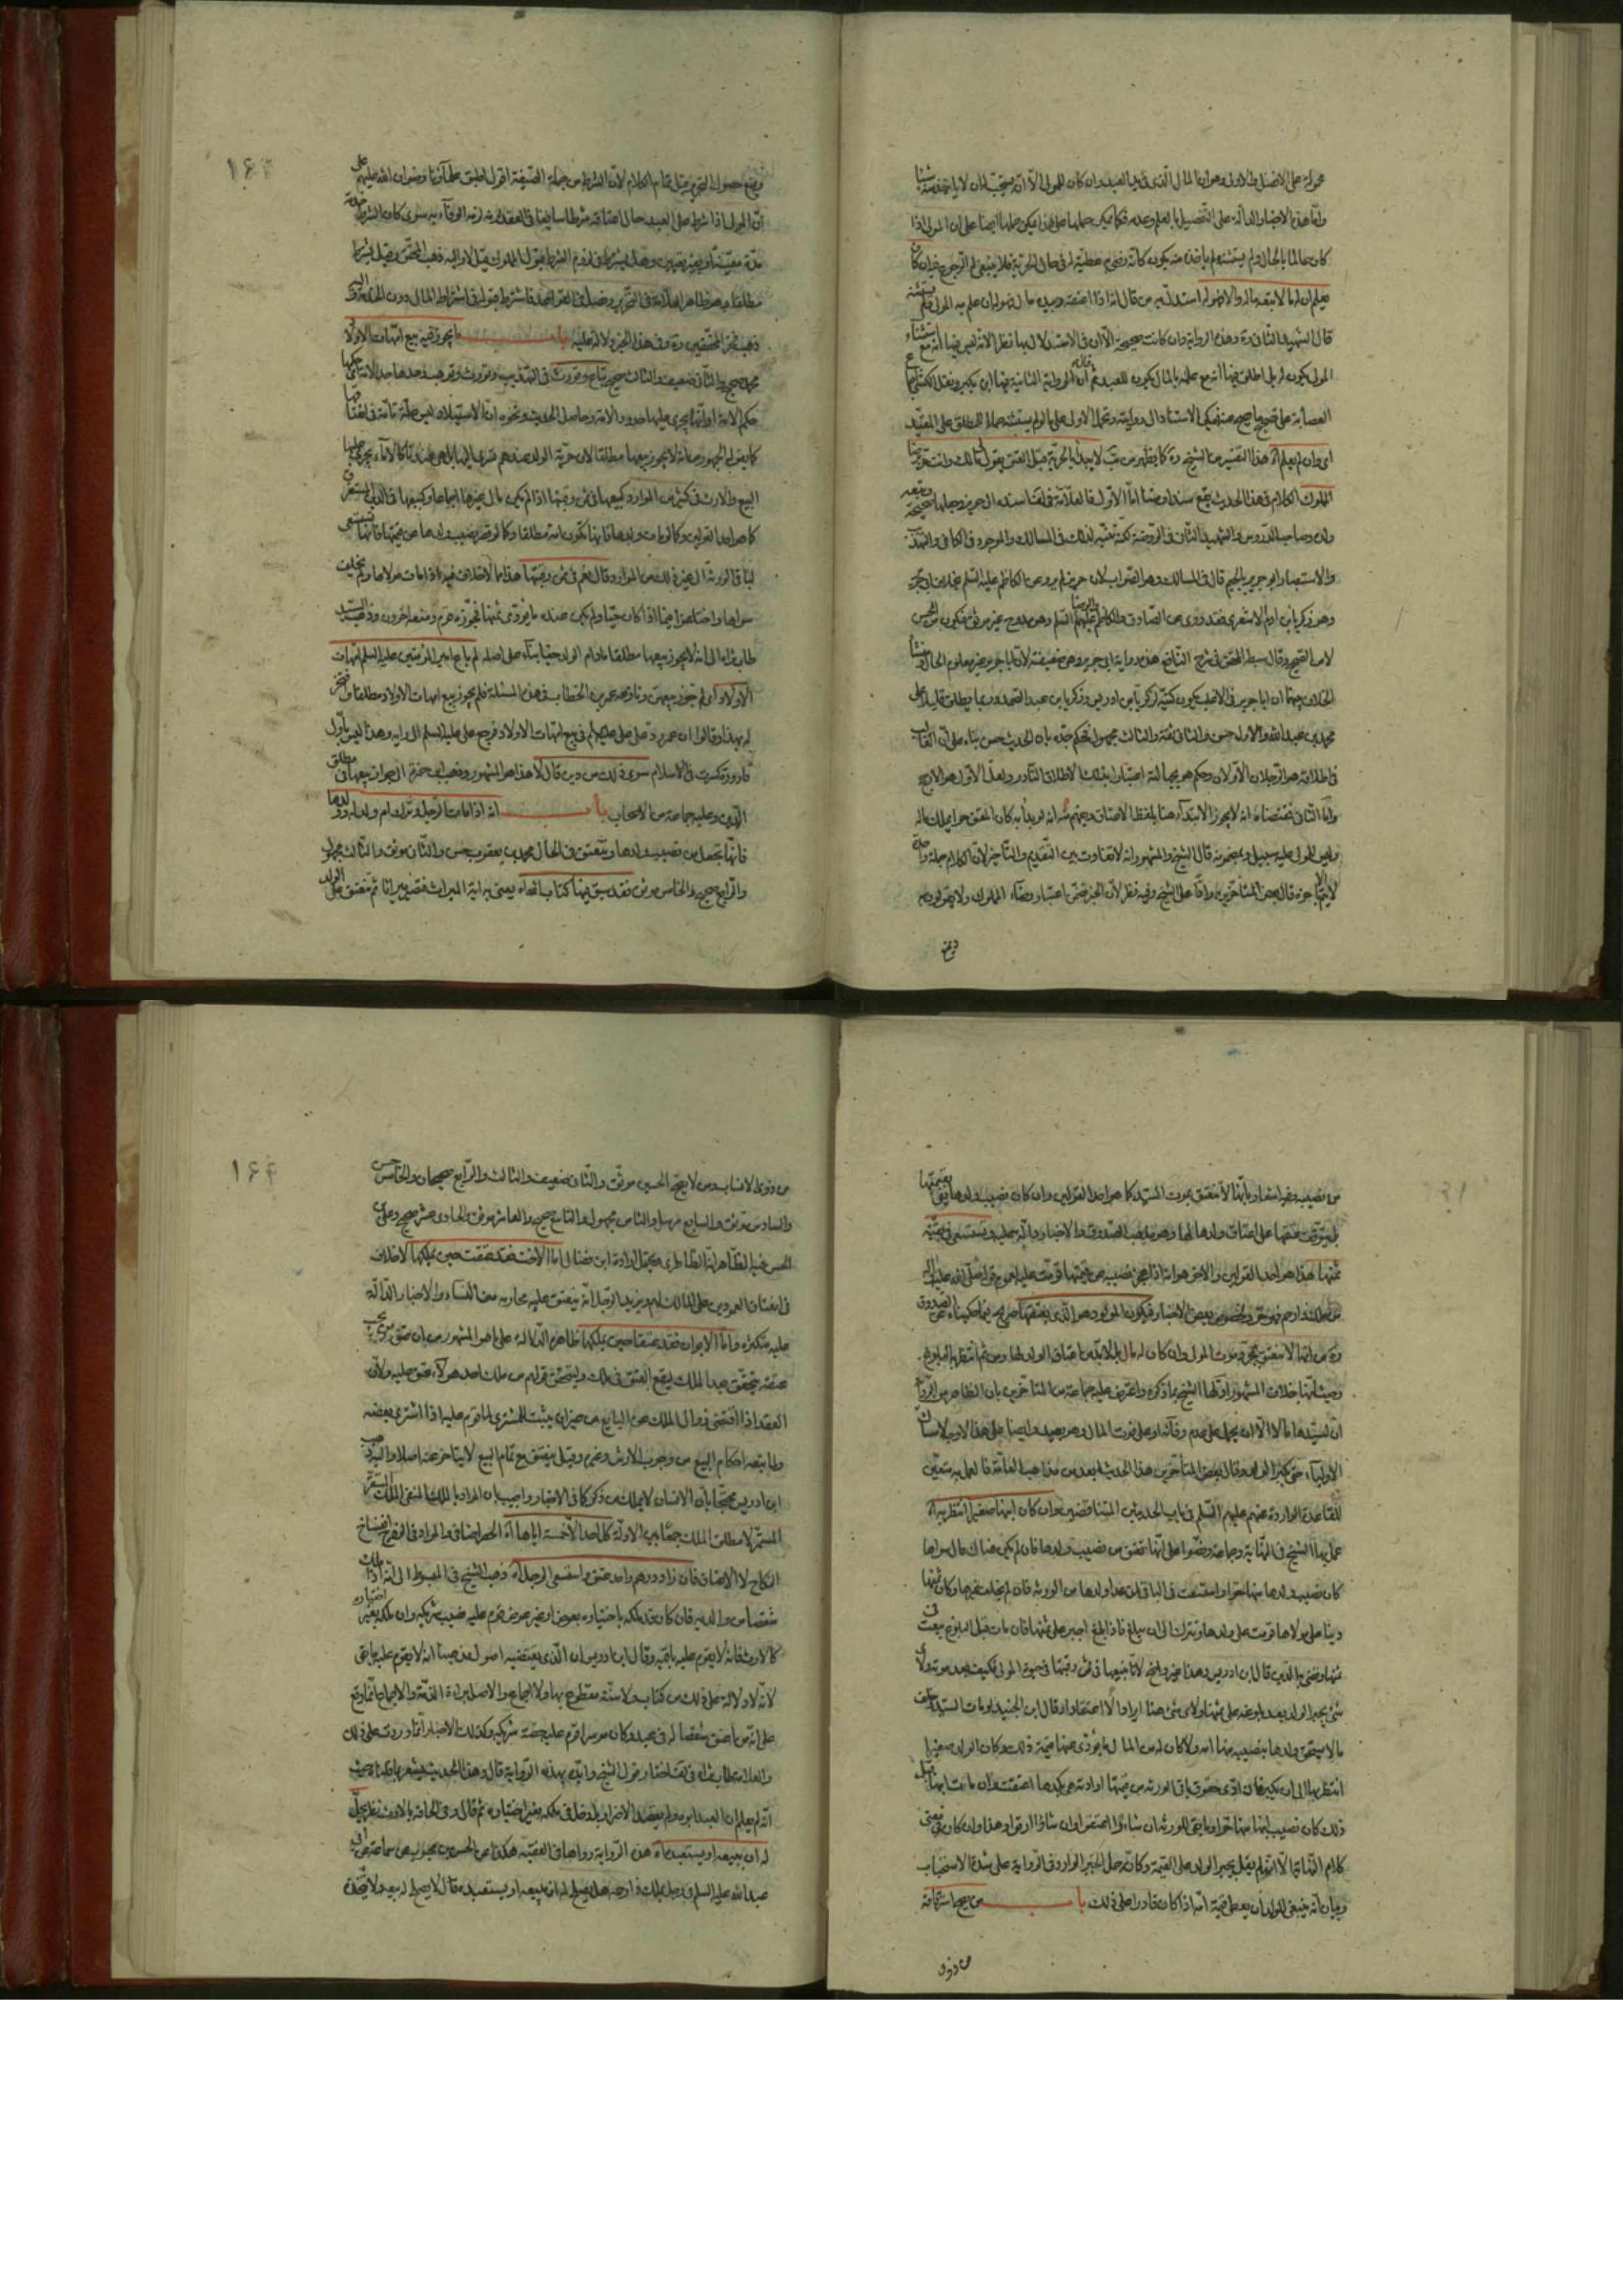 محمولة على الافضل والاولى وهو ان المال الذى فى يد العبد وان كان للمولى الا انه يستحب له ان لا ياخذ منه شيئا
وانما هذه الاخبار الدالة على التفصيل بالعلم وعدمه فكما يمكن حملها على هذا يمكن حملها ايضا على ان المولى اذا
كان عالما بالمال ولم يستثنه لم ياخذه منه يكون كانه رضى عطيته له فى حال الحرية فلا ينبغى له الرجوع فيه ان كان
يعلم ان له مالا تبعه ماله والا فهو له استدل به من قال انه اذا اعتقه وبيده مال فهو له ان علم به المولى فلم يستثنه
قال الشهيد الثانى ره وهذه الرواية وان كانت صحيحة الا ان فى الاستدلال بها نظرا لانه ليس فيها انه مع استثناء
المولى يكون له بل اطلق فيها انه مع علمه بالمال يكون للعبد ثم قال ان الرواية الثانية فيها ابن بكير ونقل الكشى اجماع
العصابة على تصحيح ما يصح عنه فيمكن الاستناد الى روايته وتحمل الاولى على ما لم يستثنه حملا للمطلق على المقيد
اى وان لم يعلم آه هذا التفسير من الشيخ ره كما يظهر من يب لا يبدأ بالحرية قبل العتق يقول لى مالك وانت حر برضا
المملوك الكلام فى هذا الحديث يقع سندا ومتنا اما الاول فالعلامة فى لف اسنده الى حريز وجعلها صحيحة وتبعه
ولده وصاحب الدروس والشهيد الثانى فى الروضة لكنه تنبه لذلك فى المسالك والموجود فى الكافى والتهذيب
والاستبصار ابو جرير بالجيم قال فى المسالك وهو الصواب لان حريز لم يرو عن الكاظم عليه السلم بخلاف ابى جرير
وهو زكريا بن ادم الاشعرى فقد روى عن الصادق والكاظم والرضا عليهم السلم وهو ممدوح غير موثق فيكون من الحسن
لا من الصحيح وقال سبط المحقق فى شرح النافع هذه رواية ابى جرير وهى ضعيفة لان ابا جرير غير معلوم الحال ومنشأ
الخلاف بينهما ان ابا جرير فى الاغلب يكون كنية زكريا بن ادريس وزكريا بن عبد الصمد وربما يطلق قليلا على
محمد بن عبد الله والاول حسن والثانى ثقة والثالث مجهول فحكم جده بان الحديث حسن بناء على ان الغالب
فى اطلاقه هو الرجلان الاولان وحكم هو بجهالته اعتبارا بذلك الاطلاق النادر ولعل الاول هو الارجح
واما الثانى فمقتضاه انه لا يجوز الابتداء هنا بلفظ الاعتاق ويفهم منه انه لو بدأ به كان المعتق حرا يملك ماله
وليس للمولى عليه سبيل وبمضمونه قال الشيخ والمشهور انه لا تفاوت بين التقديم والتاخير لان الكلام جملة واحدة
لا يتم الا باخره قال بعض المتأخرين رادا على الشيخ وفيه نظر لان الخبر تضمن اعتبار رضاء المملوك ولا يقولون به
ومنع
ومنع حصول التحرير قبل تمام الكلام لان الشرط من جملة الصيغة اقول اطبق علماؤنا رضوان الله عليهم على
ان المولى اذا شرط على العبد حال اعتاقه شرطا سايغا فى العقد لزمه الوفاء به سوى كان الشرط خدمة
مدة معينة او بغير تعيين وهل يشترط فى لزوم الشرط قبول المملوك قيل لا واليه ذهب المحقق وقيل يشترط
مطلقا وهو ظاهر العلامة فى التحرير وفصل فى القواعد فاشترط قبوله فى اشتراط المال دون الخدمة واليه
ذهب فخر المحققين ره وفى هذا الخبر دلالة عليه باب ما يجوز فيه بيع امهات الاولاد
محمد صحيح والثانى ضعيف والثالث صحيح تباع وتورث فى التهذيب وتورث وتوهب وحدها حد الامة اى حكمها
حكم الامة او انها يجرى عليها حدود الامة وحاصل الحديث ونحوه ان الاستيلاد ليس علة تامة فى اعتاقها
كما يقوله الجمهور من انه لا يجوز بيعها مطلقا لان حرية الولد عندهم تسرى اليها بل هى عندنا كالاماء يجرى عليها
البيع والارث فى كثير من الموارد كبيعها فى ثمن رقبتها اذا لم يكن مال غيرها اجماعا وكبيعها فى الدين المستغرق
كما هو احد القولين وكما لو مات ولدها فانها تكون امة مطلقا وكما لو قصر نصيب ولدها عن قيمتها فانها تستسعى
لباقى الورثة الى غير ذلك من الموارد وقال نعم فى ثمن رقبتها هذا مما لا خلاف فيه اذا مات مولاها ولم يخلف
سواها واختلفوا فيما اذا كان حيا ولم يكن عنده ما يؤدى ثمنها فجوزه قوم ومنعه اخرون وذهب السيد
طاب ثراه الى انه لا يجوز بيعها مطلقا مادام الولد حيا بناء على اصله لم باع امير المؤمنين عليه السلم امهات
الاولاد اى لم جوز بيعهن ونازعه عمر بن الخطاب فى هذه المسئلة فلم يجوز بيع امهات الاولاد مطلقا وافتخر
له بهذا وقالوا ان عمر رد على على عليه السلم فى بيع امهات الاولاد فرجع على عليه السلم الى رايه وهذا ليس باول
قارورة كسرت فى الاسلام سوى ذلك من دين قال لا هذا هو المشهور وذهب ابن حمزة الى جواز بيعها فى مطلق
الدين وعليه جماعة من الاصحاب باب انه اذا مات الرجل وترك ام ولد له وولدها
فانها تجعل من نصيب ولدها وتنعتق فى الحال محمد بن يعقوب حسن والثانى موثق والثالث مجهول
والرابع صحيح والخامس موثق فقد سبق فيها كتاب الله آه يعنى به اية الميراث فتصير ميراثا ثم تنعتق على الولد
من نصيبه وفيه اشعار بانها لا تنعتق بموت السيد كما هو احد القولين وان كان نصيب ولدها يفى بقيمتها
بل يتوقف عتقها على اعتاق ولدها لها وهو مذهب الصدوق والاخبار دالة عليه وتستسعى فى بقية
ثمنها هذا هو احد القولين والاخر هو انه اذا عجز نصيبه عن قيمتها قومت عليه لعموم قوله صلى الله عليه واله
من ملك ذا رحم فهو حر ولخصوص بعض الاخبار فيكون المولود هو الذى يعتقها صريح فيما حكيناه عن الصدوق
ره من انها لا تنعتق بمجرد موت المولى وان كان له مال بل لا بد من اعتاق الولد لها ومن ثم انتظر بها البلوغ
وحيث انها خلاف المشهور اولها الشيخ بما ذكره واعترض عليه جماعة من المتاخرين بان الظاهر من الرواية
ان لسيدها مالا الا ان يحمل على عدم وفائه او على فوت المال وهو بعيد وايضا على هذا لا وجه لاستيناء
الاولياء حتى يكبر الولد وقال بعض المتأخرين هذا الحديث لبعده من مذاهب العامة فالعمل به متعين
للقاعدة الواردة عنهم عليهم السلم فى باب الحديثين المتناقضين وان كان ابنها صغيرا انتظر به آه
عمل بها الشيخ فى النهاية وجماعة ونصوا على انها تعتق من نصيب ولدها فان لم يكن هناك مال سواها
كان نصيب ولدها منها حرا واستسعت فى الباقى لمن عدا ولدها من الورثة فان لم يخلف غيرها وكان ثمنها
دينا على مولاها قومت على ولدها وتترك الى ان يبلغ فاذا بلغ اجبر على ثمنها فان مات قبل البلوغ بيعت فى
ثمنها وقضى به الدين قال ابن ادريس وهذا غير واضح لانا نبيعها فى ثمن رقبتها فى حيوة المولى فكيف بعد موته ولاى
شئ يجبر الولد بعد بلوغه على ثمنها ولاى شئ هذا ايرادا لا اعتقادا وقال ابن الجنيد لو مات السيد وخلف
ما لا يستحق ولدها بنصيبه منها امه ولا كان له من المال ما يؤدى عنها قيمة ذلك وكان الولد صغيرا
انتظر بها الى ان يكبر فان ادى حقوق باقى الورثة من قيمتها او ادته هى بكدها اعتقت وان مات ابنها قبل
ذلك كان نصيب ابنها منها حرا وما بقى للورثة ان شاءوا اعتقوا وان شاؤا ارقوا وهذا وان كان فى معنى
كلام النهاية الا انه لم يقل بجبر الولد على القيمة وكانه حمل الخبر الوارد فى الرواية على شدة الاستحباب
وبيان انه ينبغى للولد ان يعطى قيمة امه اذا كان قادرا على ذلك باب من يصح استرقاقه
من ذوى
من ذوى الانساب ومن لا يصح الحسين موثق والثانى ضعيف والثالث والرابع صحيحان والخامس حسن
والسادس موثق والسابع مرسل والثامن مجهول والتاسع صحيح والعاشر موثق والحادى عشر صحيح وعلى بن
الحسن فيه الظاهر انه الطاطرى ويحتمل ارادة ابن فضال اما الاخت فقد عتقت حين يملكها لا خلاف
فى انعتاق العمودين على المالك لهم ويزيد الرجل انه ينعتق عليه محارمه من النساء والاخبار الدالة
عليه متكثرة واما الابوان فقد عتقا حين يملكهما ظاهره الدلالة على ما هو المشهور من ان عتق من يجب
عتقه يتحقق بعد الملك ليقع العتق فى ملك وليتحقق قولهم من ملك احد هؤلاء عتق عليه ولان
العقد اذا اقتضى زوال الملك عن البايع من حيزان يثبت للمشترى لما قوم عليه اذا اشترى بعضه
ولما تبعه احكام البيع من وجوب الارش وغيره وقيل ينعتق مع تمام البيع لا يتأخر عنه اصلا واليه ذهب
ابن ادريس محتجا بان الانسان لا يملك من ذكر كما فى الاخبار واجيب بان المراد بالملك المنفى الملك المستقر
المستمر لا مطلق الملك جمعا بين الادلة كل احد الا خمسة اباها آه الحصر اضافى والمراد فى الفقرة انفساخ
النكاح لا الاعتاق فان زاد درهم واحد عتق واستسعى الرجل آه ذهب الشيخ فى المبسوط الى انه اذا ملك
شقصا من والديه فان كان قد ملكه باختياره بعوض او غير عوض قوم عليه نصيب شريكه وان ملكه بغير اختياره
كالارث فانه لا يقوم عليه باقيه وقال ابن ادريس ان الذى يقتضيه اصول مذهبنا انه لا يقوم عليه ما بقى
لانه لا دلالة على ذلك من كتاب ولا سنة مقطوع بها ولا اجماع والاصل براءة الذمة والاجماع انما وقع
على انه من اعتق شقصا له فى عبد وكان موسرا قوم عليه حصة شريكه وكذلك الاخبار انما وردت على ذلك
والعلامة طاب ثراه فى لف اختار قول الشيخ وايده بهذه الرواية قال وهذا الحديث يشعر بما قلناه حيث
انه لم يعلم ان العبد ابوه ولم يقصد الاضرار بل دخل فى ملكه بغير اختياره ثم قال وفى الحاقه بالارث نظر يجل
له ان يبيعه او يستعبده آه هذه الرواية رواها فى الفقيه هكذا عن الحسن بن محبوب عن سماعة عن ابى
عبد الله عليه السلم فى رجل يملك ذا رحمه هل يصلح له ان يبيعه او يستعبده قال لا يصلح له بيعه ولا يتخذه